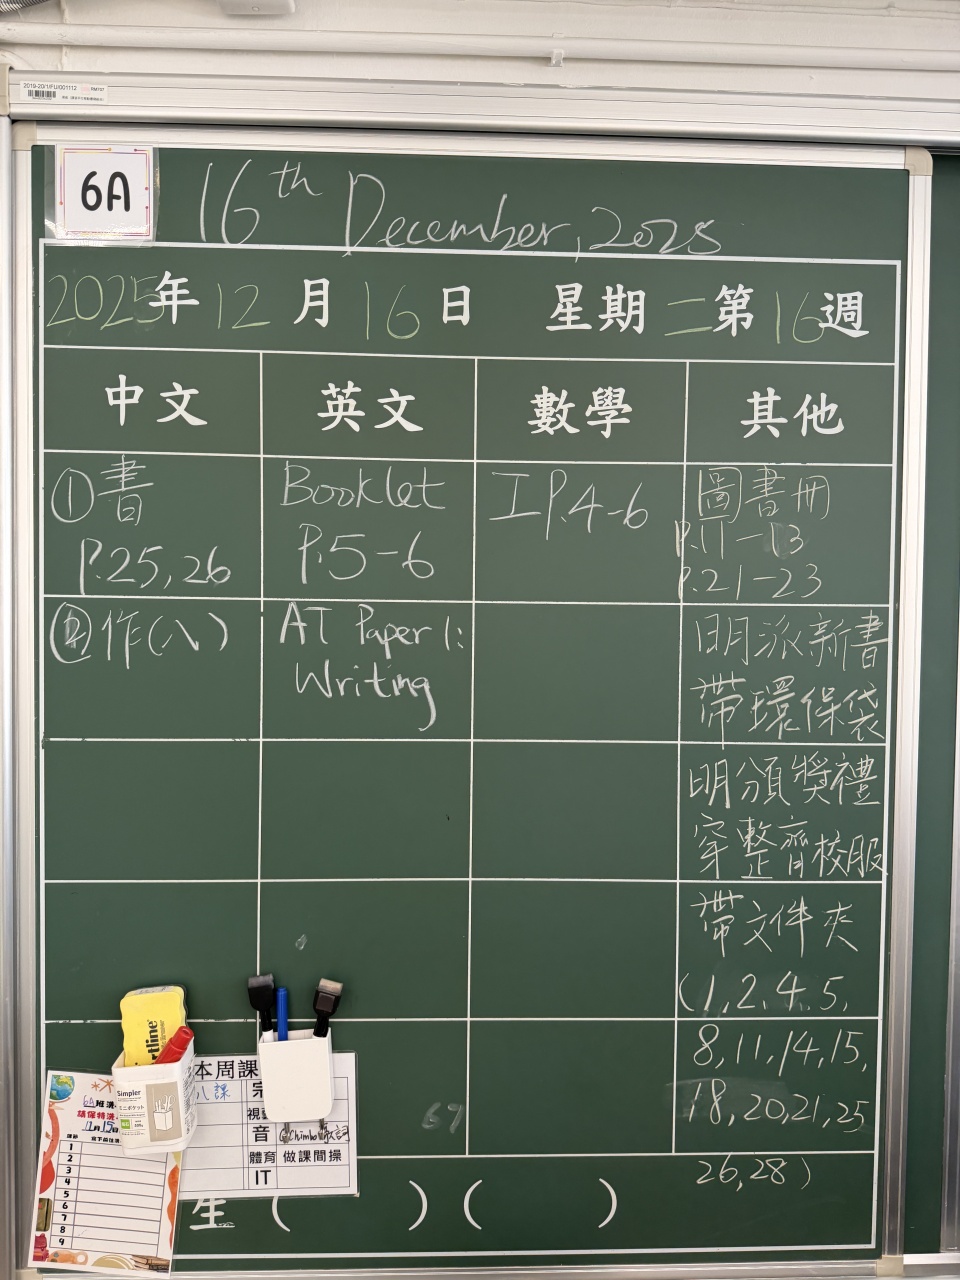 2019-20/1/FU/001112
6A
16th December, 2025
2025年12月16日 星期二第16週
中文 英文 數學 其他
①書
P.25,26
②作(八)
Booklet
P.5-6
AT Paper 1:
Writing
I P.4-6
圖書冊
P.11-13
P.21-23
明派新書
帶環保袋
明頒獎禮
穿整齊校服
帶文件夾
(1,2,4,5,
8,11,14,15,
18,20,21,25
26,28)
69
本周課
八課
音
體育 做課間操
IT
Simpler
6A班
1
2
3
4
5
6
7
8
9
生( )( )